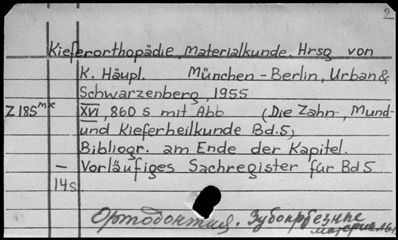 2
Kieferorthopädie, Materialkunde. Hrsg von
K. Häupl. München-Berlin, Urban &
Schwarzenberg, 1955
Z 185 mk XVI, 860 s mit Abb (Die Zahn, Mund-
und Kieferheilkunde Bd. 5)
Bibliogr. am Ende der Kapitel.
— Vorläufiges Sachregister für Bd 5
14 s
Ортодонтия. Зубоврачебные
материалы